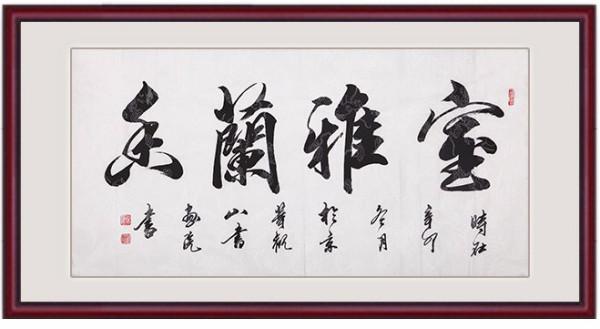 室雅蘭香
時在
辛卯
冬月
於京
華觀
山書
畫院
書